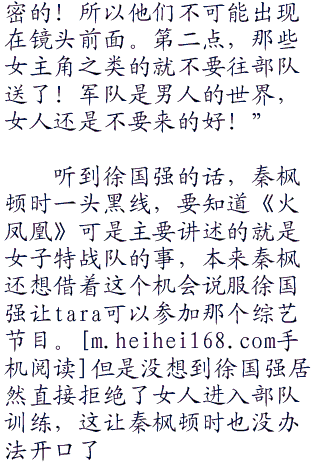 密的！所以他们不可能出现
在镜头前面。第二点，那些
女主角之类的就不要往部队
送了！军队是男人的世界，
女人还是不要来的好！”
听到徐国强的话，秦枫
顿时一头黑线，要知道《火
凤凰》可是主要讲述的就是
女子特战队的事，本来秦枫
还想借着这个机会说服徐国
强让tara可以参加那个综艺
节目。[m.heihei168.com手
机阅读]但是没想到徐国强居
然直接拒绝了女人进入部队
训练，这让秦枫顿时也没办
法开口了